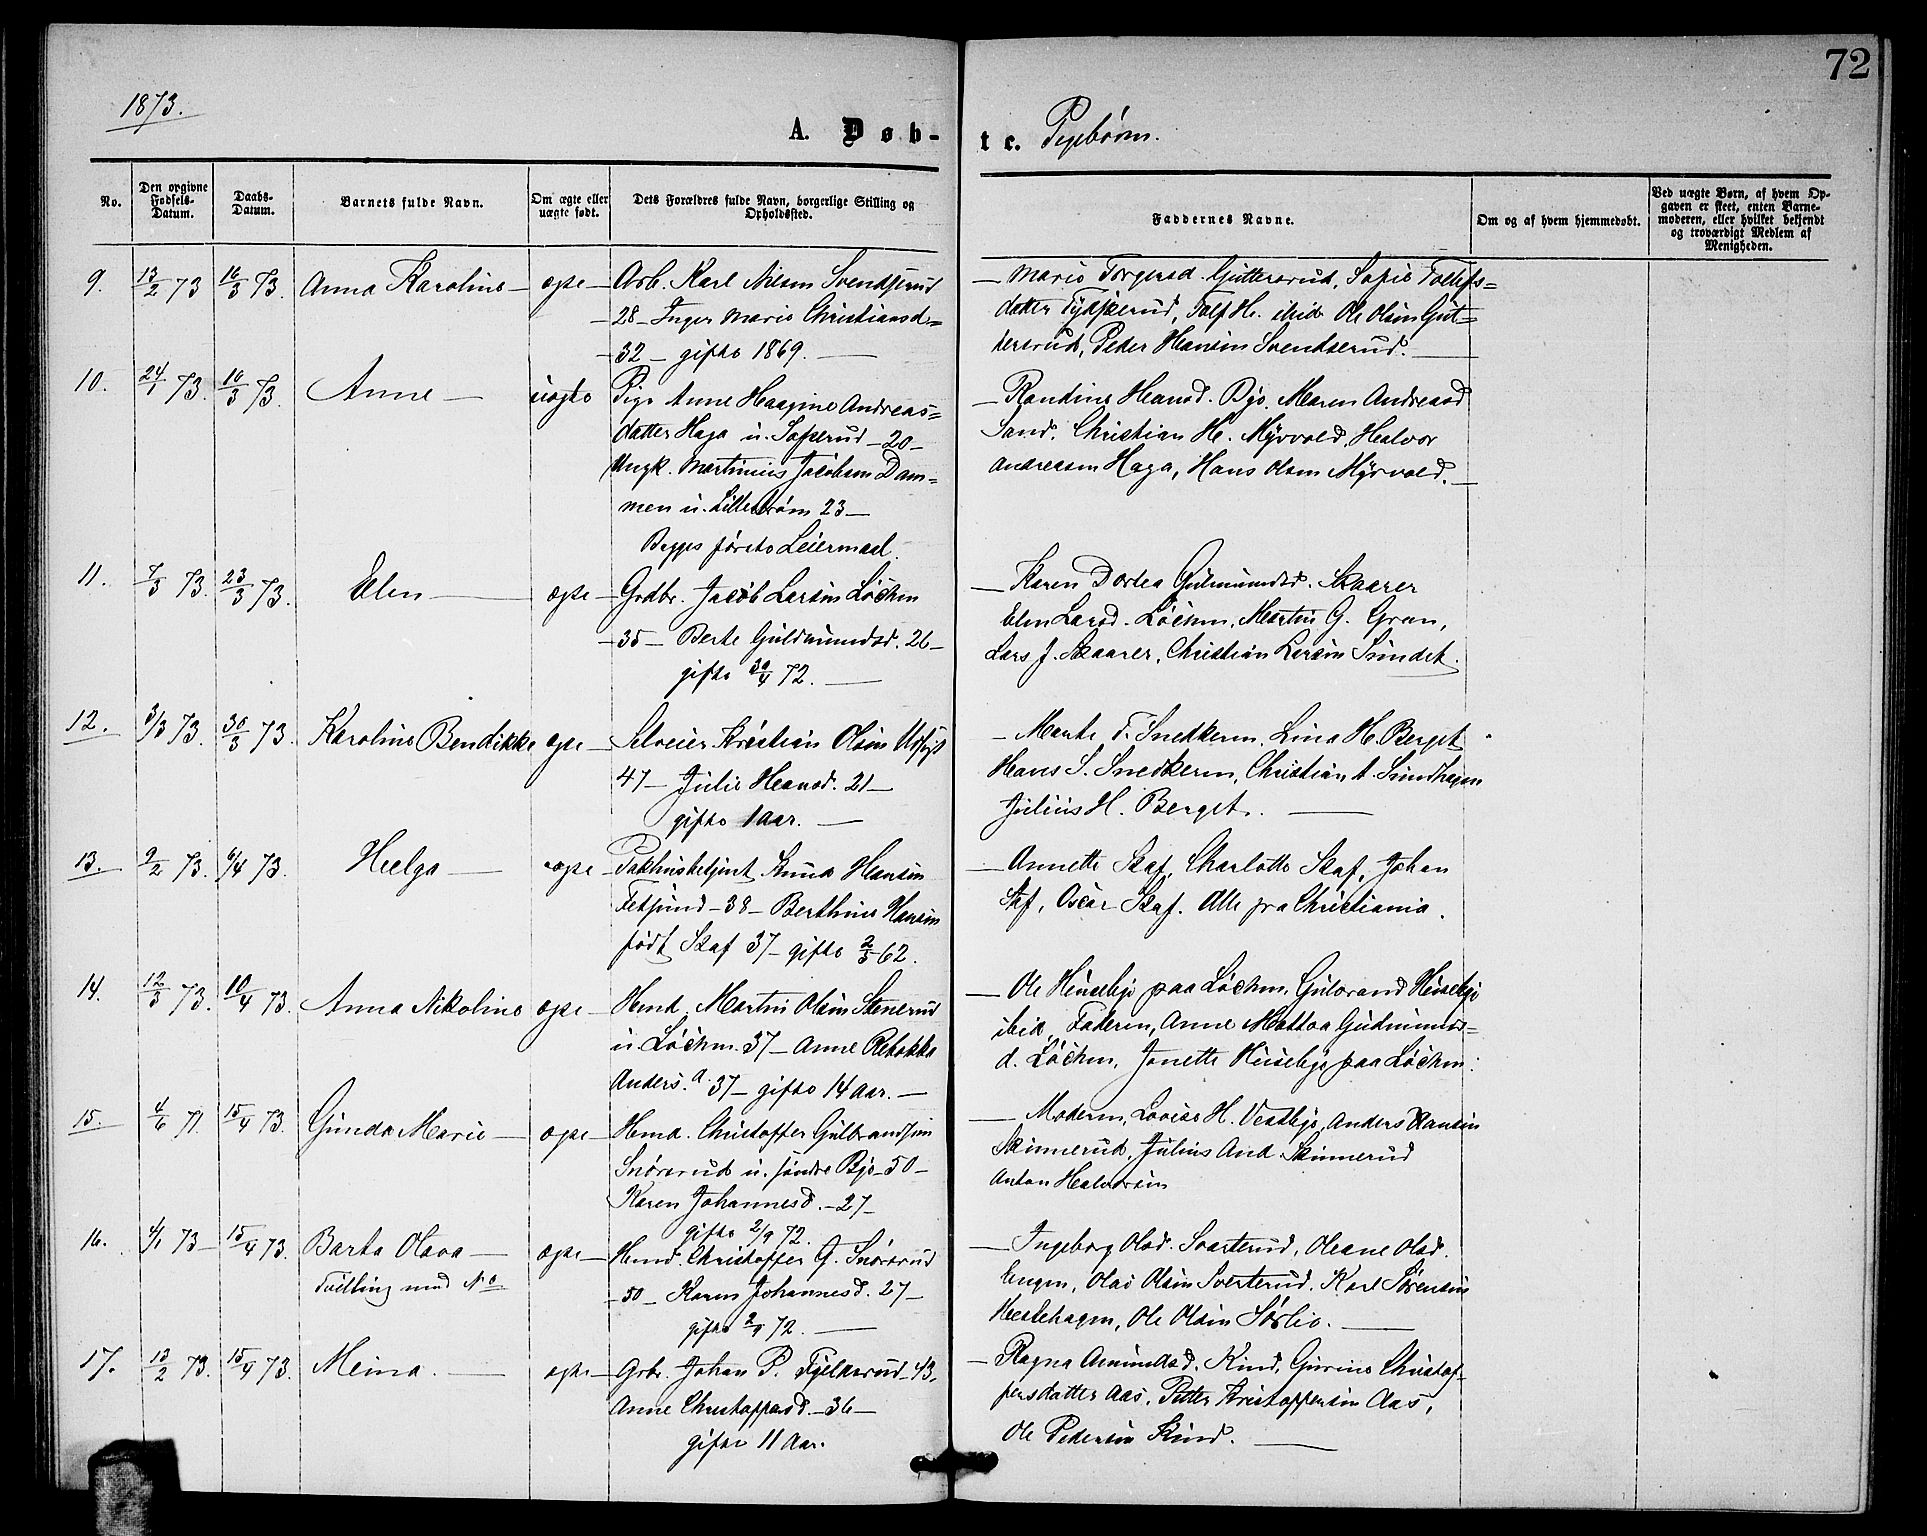 72
1873.
A. Døb-
te. Pigebørn.
No.
Den opgivne Fødsels-Datum.
Daabs-Datum.
Barnets fulde Navn.
Om ægte eller uægte født.
Dets Forældres fulde Navn, borgerlige Stilling og Opholdssted.
Faddernes Navne.
Om og af hvem hjemmedøbt.
Ved uægte Børn, af hvem Op-
gaven er skeet, enten Barne-
moderen, eller hvilket bekjendt
og troværdigt Medlem af
Menigheden.
9. 13/2 73 16/3 73. Anna Karoline — ægte — Arb. Karl Nilsen Svendserud
28 — Inger Marie Christiansd=
32 — gifte 1869. —
— Marie Torgersd. Guttersrud, Sofie Tollefs=
datter, Tolf H. ibid. Ole Olsen Gut=
tersrud, Peder Hansen Svendserud. —
10. 24/1 73. 16/3 73. Anne — uægte Pige Anne Haagine Andreas=
datter Haga u. — 20 —
Ungk. Martinius Jacobsen Dam=
men u. Lillestrøm 23 —
Begges første Leiermaal.
— Randine Hansd. Bjø. Maren Andreasd
Sand. Christian H. Myrvold, Halvor
Andreasen Haga, Hans Olsen Myrvold. —
11. 7/3 73. 23/3 73. Elen — ægte — Grdbr. Jacob Larsen Løchen
— 35 — Berte Guldmundsd. 26 —
gifte 30/4 72. —
— Karen Dortea Gulmundsd. Skaarer
Elen Larsd. Løchen, Martin G. Gran,
Lars J. Skaarer, Christian Larsen Sundet.
12. 3/3 73. 30/3 73. Karoline Bendikke ægte — Selveier Kristian Olsen
47 — Julie Hansd. 21 —
gifte 1 Aar. —
— Marte T. Snekkeren, Lina H. Berget
Hans S. Snedkeren, Christian A. Sundhagen
Julius H. Berget. —
13. 9/2 73. 6/4 73. Helga — ægte — Pakhusbetjent Knud Hansen
Fetsund — 38 — Berthine Hansen
født Skaf 37 — gifte 2/3 62.
— Annette Skaf, Charlotte Skaf, Johan
Skf, Oscar Skaf. Alle fra Christiania.
14. 12/3 73. 10/4 73. Anna Nikoline ægte — Hmd. Martin Olsen Stenerud
u. Løchen. 37 — Anne Rebekka
Anders.d. 37 — gifte 14 Aar. —
— Ole Huseby paa Løchen. Gulbrand Huseby
ibid, Faderen, Anne Mattea Gudmunds=
d. Løchen, Jonette Huseby paa Løchen.
15. 4/6 71. 15/4 73. Gunda Marie — ægte — Hmd. Christoffer Gulbrandsen
Snørerud u. søndre Bjø — 50 —
Karen Johannesd. — 27 —
gifte 2/9 72.
— Moderen, Lovise H. Vestby, Anders Hansen
Skinnerud, Julius And. Skinnerud
Anton Halvorsen
16. 4/1 73 — 15/4 73. Barta Olava — ægte — Hmd. Christoffer G. Snørerud
Tvilling med No
— 50 — Karen Johannesd. 27 —
gifte 2/9 72. —
— Ingeborg Olsd. Svarterud, Oleane Olsd.
Engen, Olav Olsen Svarterud. Karl Sørensen
Hestehagen, Ole Olsen Sørlie. —
17. 13/2 73. 15/4 73. Meina. — ægte — Grbr. Johan P. Fjeldserud — 43.
Anne Christoffersd. — 36 —
gifte 11 Aar.
— Ragna Amundsd. Kind, Gurine Christof-
fersdatter Aas, Petter Kristoffersen Aas,
Ole Pedersen Kind. —